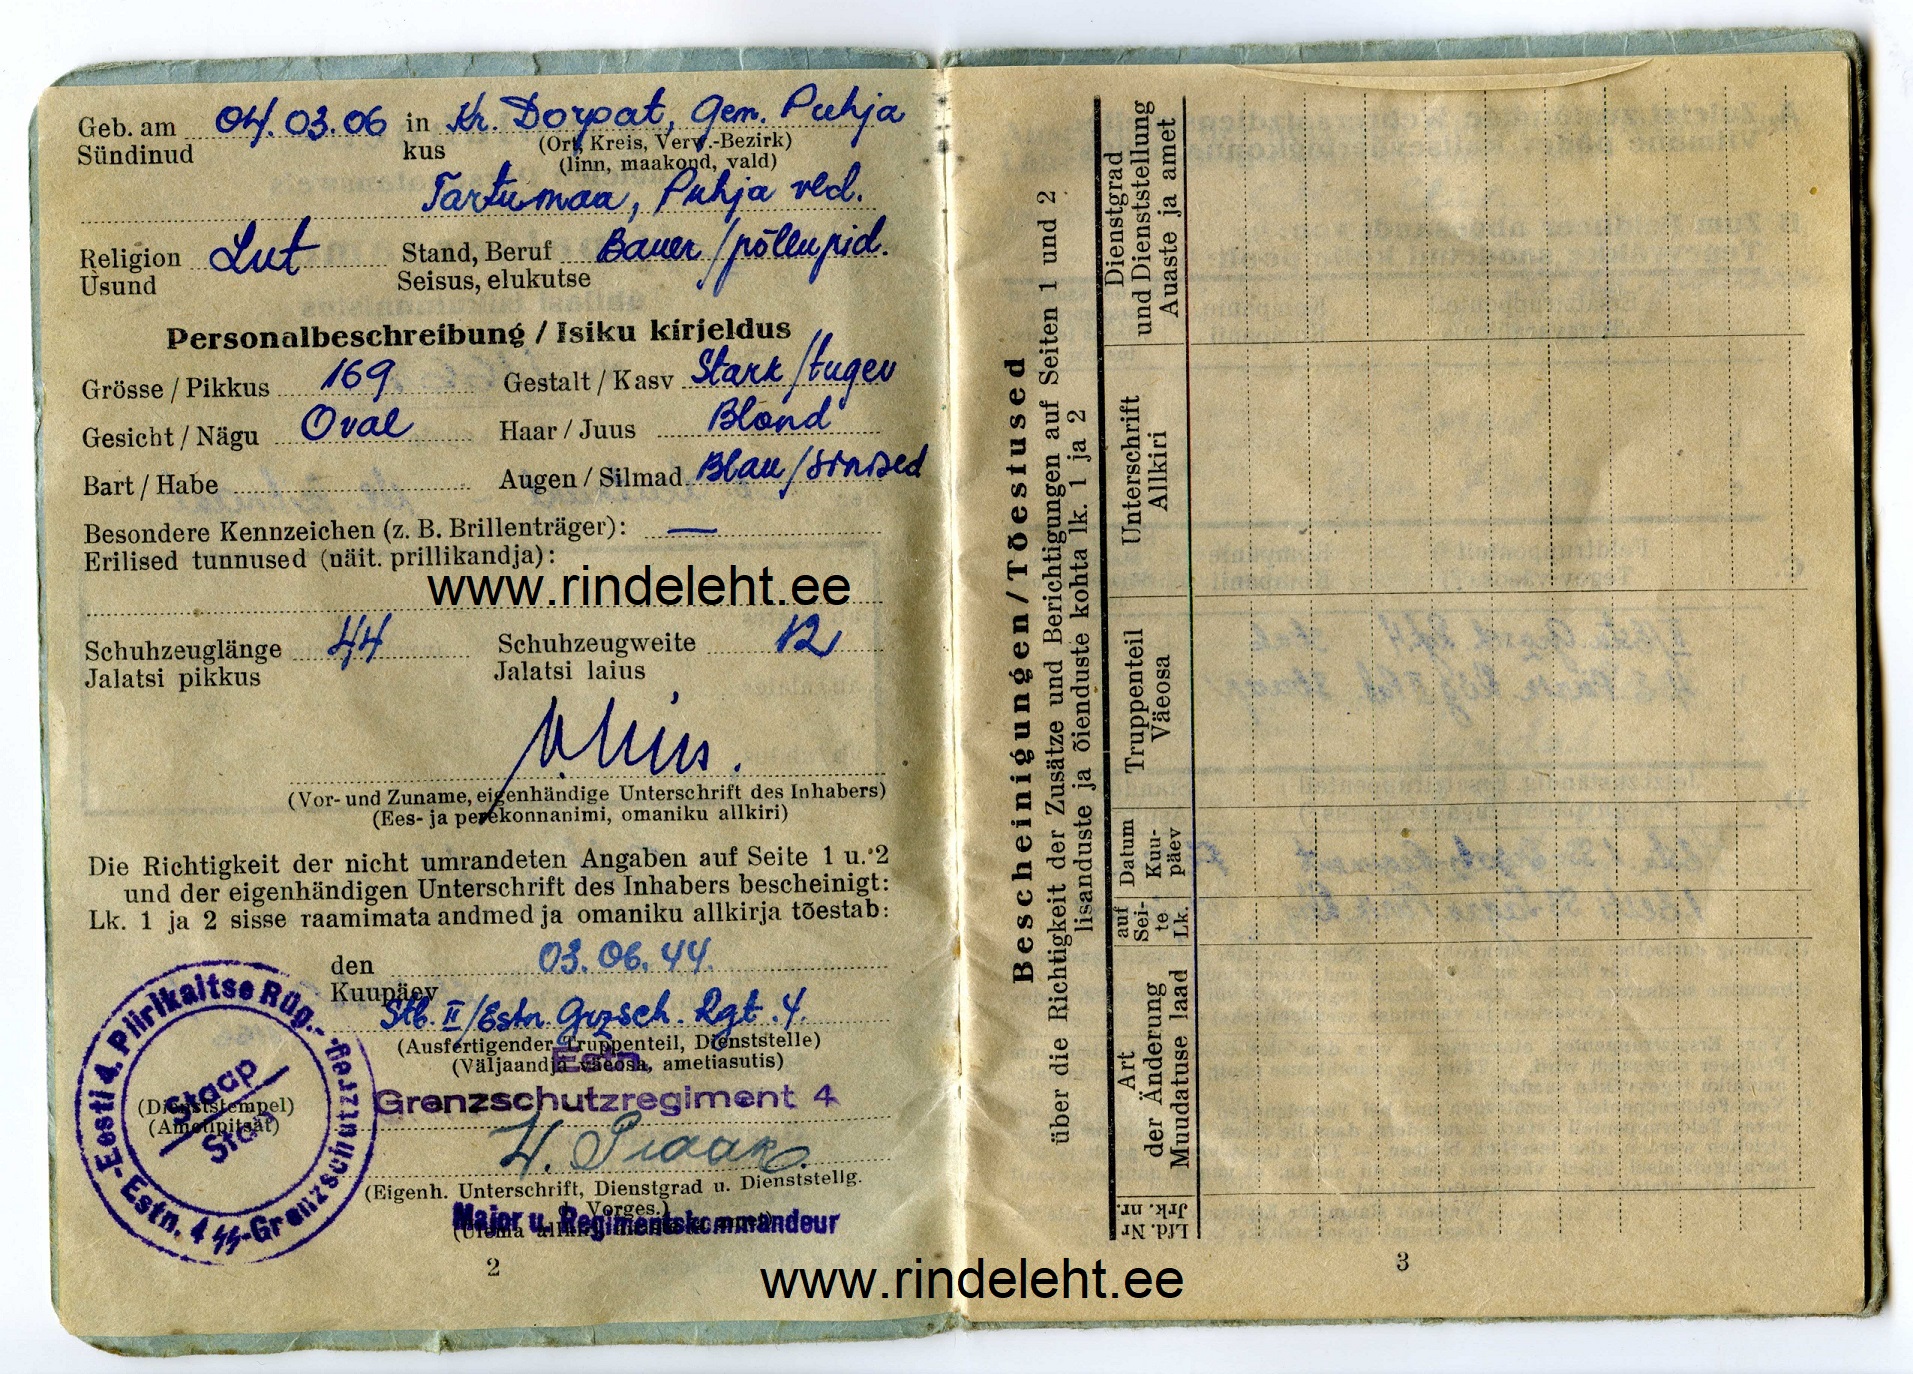 Geb. am 04.03.06 in Kr. Dorpat, Gem. Puhja
Sündinud kus (Ort, Kreis, Verw.-Bezirk)
(linn, maakond, vald)
Tartumaa, Puhja vld.
Religion Lut Stand, Beruf Bauer/põllupid.
Usund Seisus, elukutse
Personalbeschreibung / Isiku kirjeldus
Grösse / Pikkus 169 Gestalt / Kasv Stark/tugev
Gesicht / Nägu Oval Haar / Juus Blond
Bart / Habe Augen / Silmad Blau/sinised
Besondere Kennzeichen (z. B. Brillenträger): —
Erilised tunnused (näit. prillikandja):
www.rindeleht.ee
Schuhzeuglänge 44 Schuhzeugweite 12
Jalatsi pikkus Jalatsi laius
(Vor- und Zuname, eigenhändige Unterschrift des Inhabers)
(Ees- ja perekonnanimi, omaniku allkiri)
Die Richtigkeit der nicht umrandeten Angaben auf Seite 1 u. 2
und der eigenhändigen Unterschrift des Inhabers bescheinigt:
Lk. 1 ja 2 sisse raamimata andmed ja omaniku allkirja tõestab:
den 03.06.44.
Kuupäev
Stb. II/Estn. Grzsch. Rgt. 4.
(Ausfertigender Truppenteil, Dienststelle)
(Väljaandja väeosa, ametiasutis)
Estn.
Grenzschutzregiment 4
(Dienststempel)
(Ametipitsat)
Eesti 4. Piirikaitse Rüg. - Estn. 4 SS-Grenzschutzreg.
Staap
Stab
(Eigenh. Unterschrift, Dienstgrad u. Dienststellg.
d. Vorges.)
Major u. Regimentskommandeur
2
www.rindeleht.ee
Bescheinigungen / Tõestused
über die Richtigkeit der Zusätze und Berichtigungen auf Seiten 1 und 2
lisanduste ja õienduste kohta lk. 1 ja 2
Lfd. Nr.
Jrk. nr.
Art
der Änderung
Muudatuse laad
auf
Sei-
te
Lk.
Datum
Kuu-
päev
Truppenteil
Väeosa
Unterschrift
Allkiri
Dienstgrad
und Dienststellung
Auaste ja amet
3